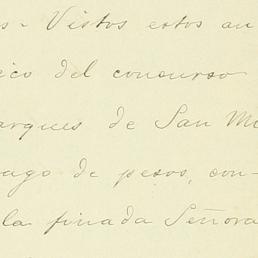 s - Vistos estos au
ico del concurso
arques de San Mi
ago de pesos, con-
la finada Señora